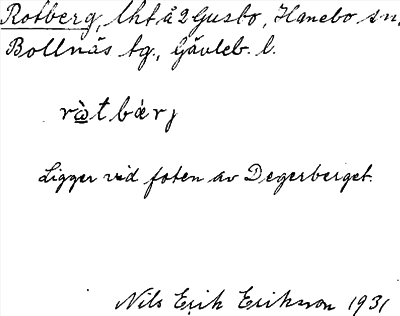 Rotberg, lht å 2 Gusbo, Hanebo sn,
Bollnäs tg., Gävleb. l.
Ligger vid foten av Degerberget.
Nils Erik Erikson 1931